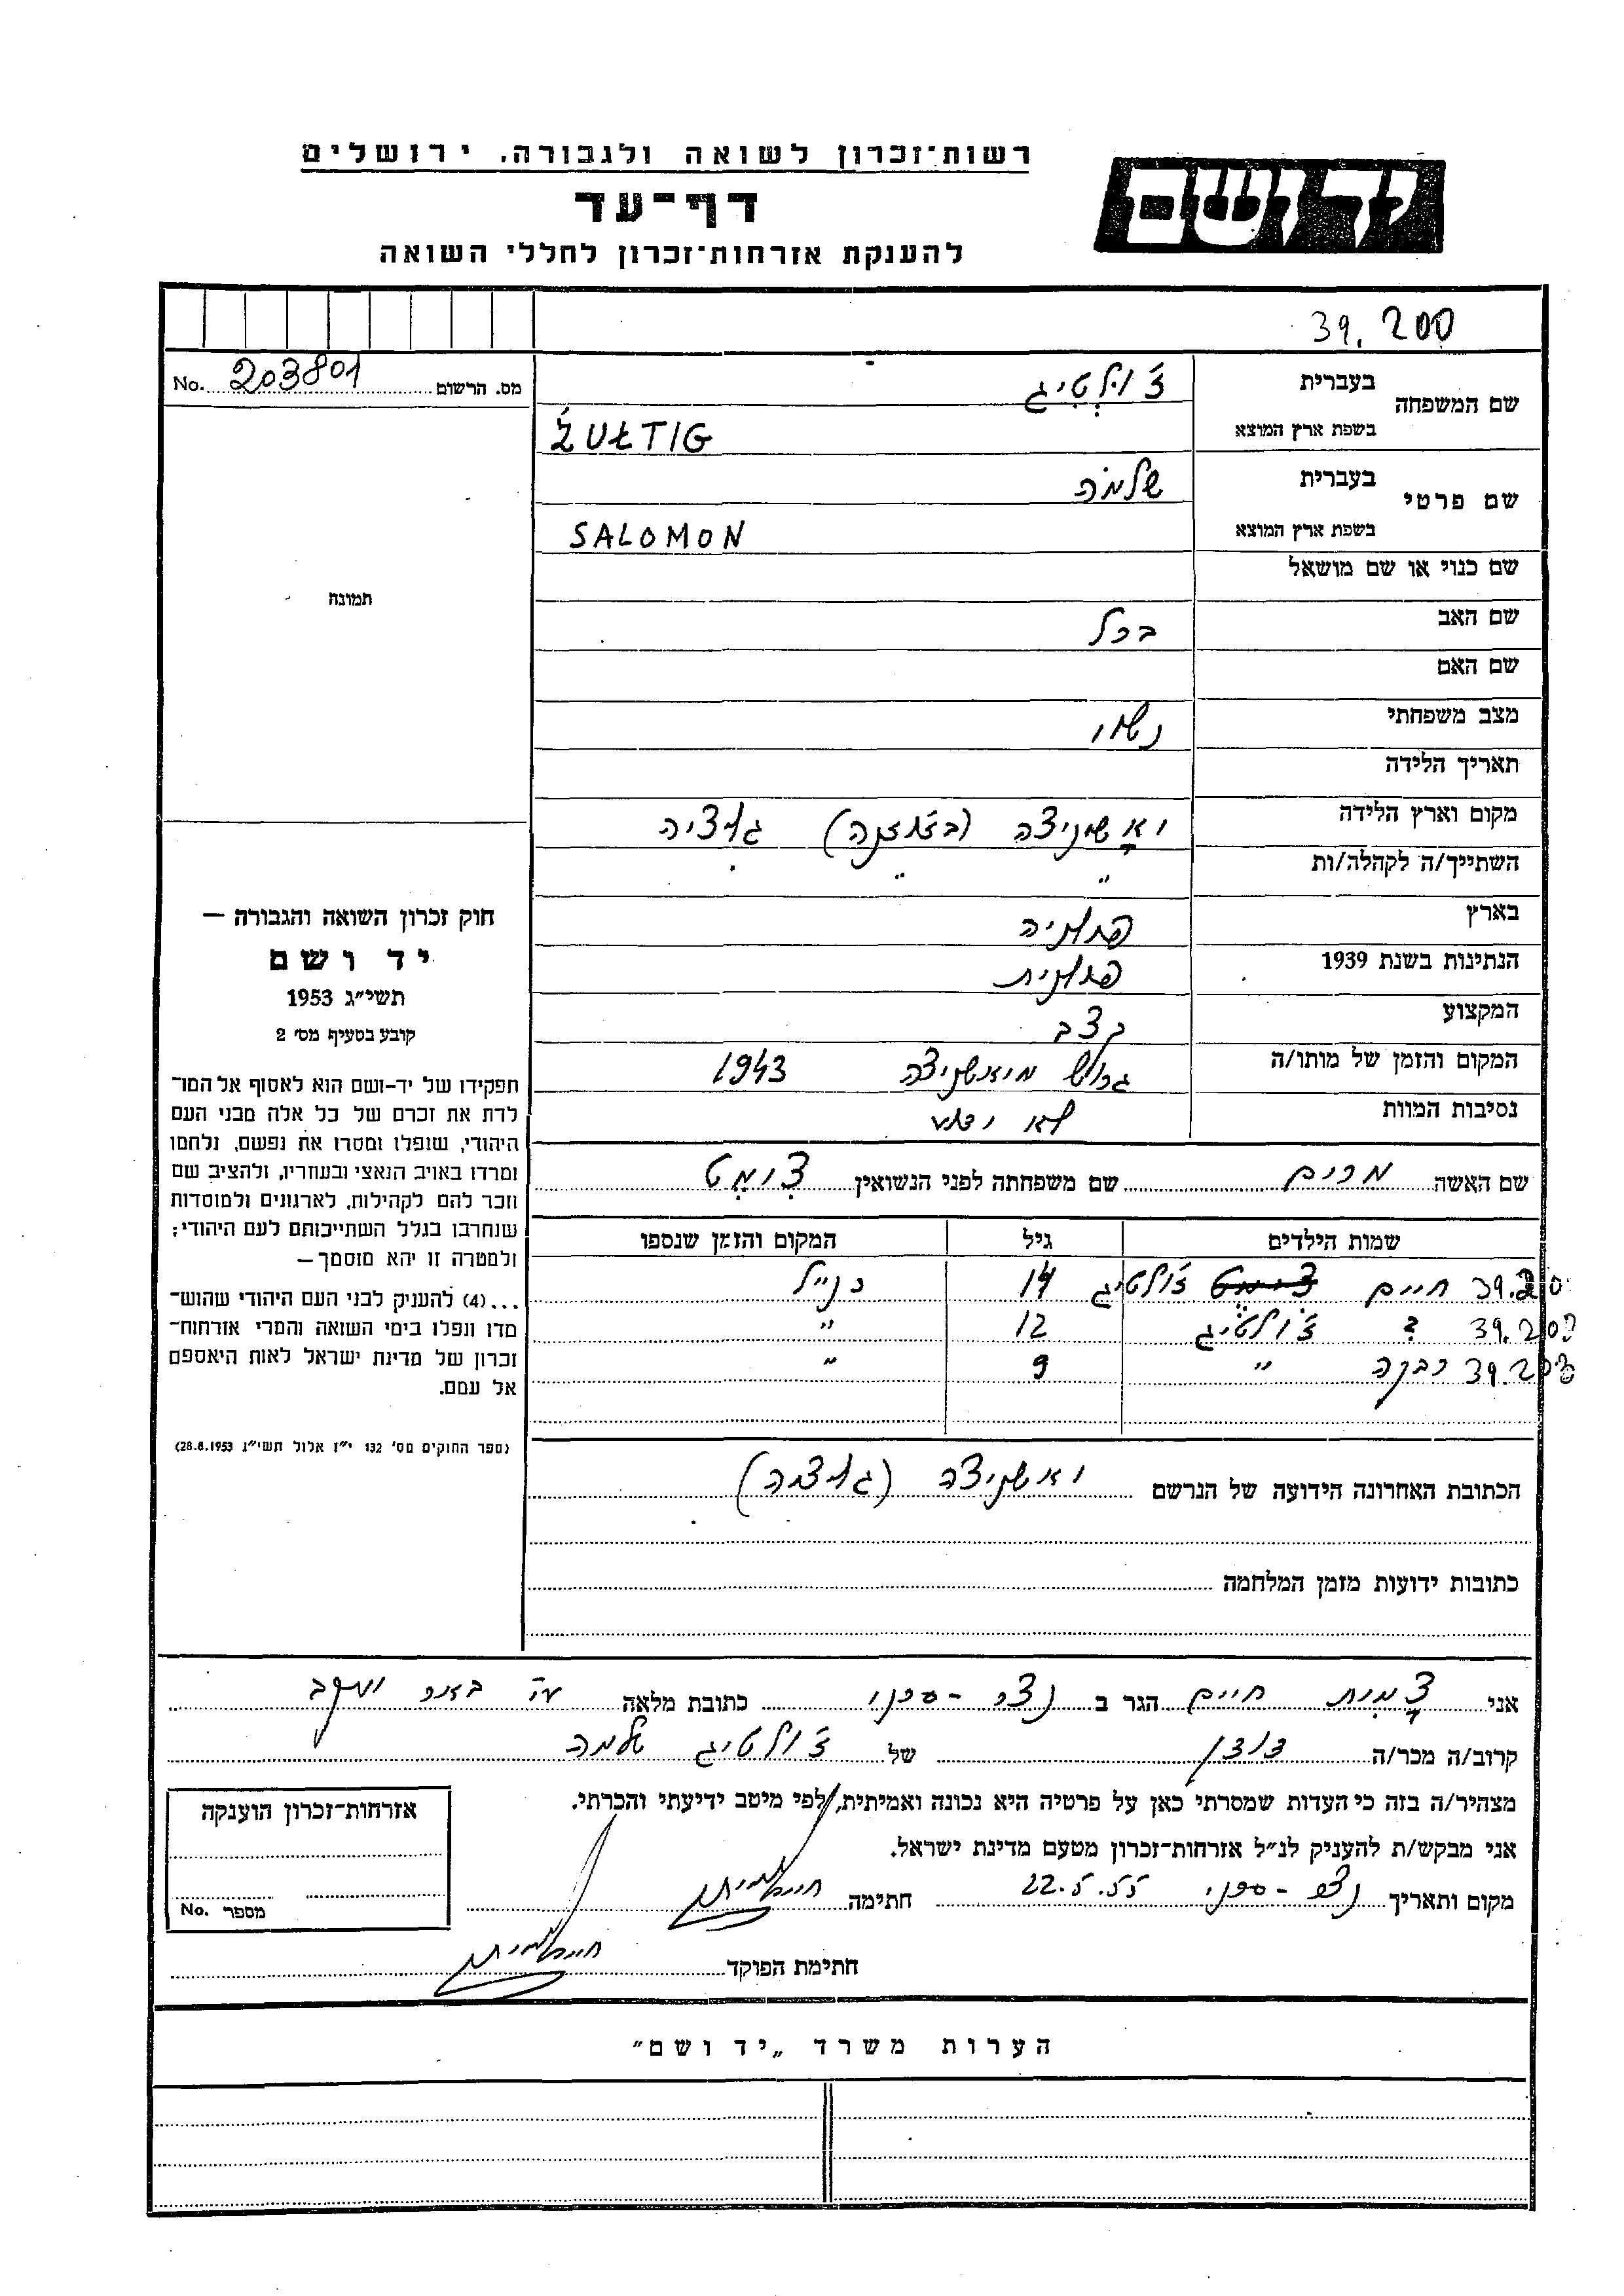 רשות־זכרון לשואה ולגבורה, ירושלים
יד ושם
דף־עד
להענקת אזרחות־זכרון לחללי השואה
39.200
מס. הרשום 203801 No.
שם המשפחה בעברית ז'ולטיג
בשפת ארץ המוצא ŻUŁTIG
שם פרטי בעברית שלמה
בשפת ארץ המוצא SALOMON
תמונה
שם כנוי או שם מושאל
שם האב
שם האם
מצב משפחתי נשוי
תאריך הלידה
מקום וארץ הלידה גליציה
השתייך/ה לקהלה/ות " " "
בארץ פולניה
הנתינות בשנת 1939 פולנית
המקצוע קצב
המקום והזמן של מותו/ה גרוש 1943
נסיבות המוות לא ידוע
שם האשה מרים שם משפחתה לפני הנשואין
שמות הילדים גיל המקום והזמן שנספו
חיים ז'ולטיג 14 כנ״ל
39.20 ? ז'ולטיג 12 "
39.20 רבקה " 9 "
הכתובת האחרונה הידועה של הנרשם
כתובות ידועות מזמן המלחמה
חוק זכרון השואה והגבורה —
יד ושם
תשי״ג 1953
קובע בסעיף מס׳ 2
תפקידו של יד-ושם הוא לאסוף אל המו־
לדת את זכרם של כל אלה מבני העם
היהודי, שנפלו ומסרו את נפשם, נלחמו
ומרדו באויב הנאצי ובעוזריו, ולהציב שם
וזכר להם לקהילות, לארגונים ולמוסדות
שנחרבו בגלל השתייכותם לעם היהודי;
ולמטרה זו יהא מוסמך—
...(4) להעניק לבני העם היהודי שהוש־
מדו ונפלו בימי השואה והמרי אזרחות־
זכרון של מדינת ישראל לאות היאספם
אל עמם.
(ספר החוקים מס׳ 132 י״ז אלול תשי״ג 28.8.1953)
אני חיים הגר ב כתובת מלאה
קרוב/ה מכר/ה של ז'ולטיג שלמה
מצהיר/ה בזה כי העדות שמסרתי כאן על פרטיה היא נכונה ואמיתית, לפי מיטב ידיעתי והכרתי.
אני מבקש/ת להעניק לנ״ל אזרחות־זכרון מטעם מדינת ישראל.
מקום ותאריך 22.5.55 חתימה
חתימת הפוקד
אזרחות־זכרון הוענקה
מספר No.
הערות משרד „יד ושם"